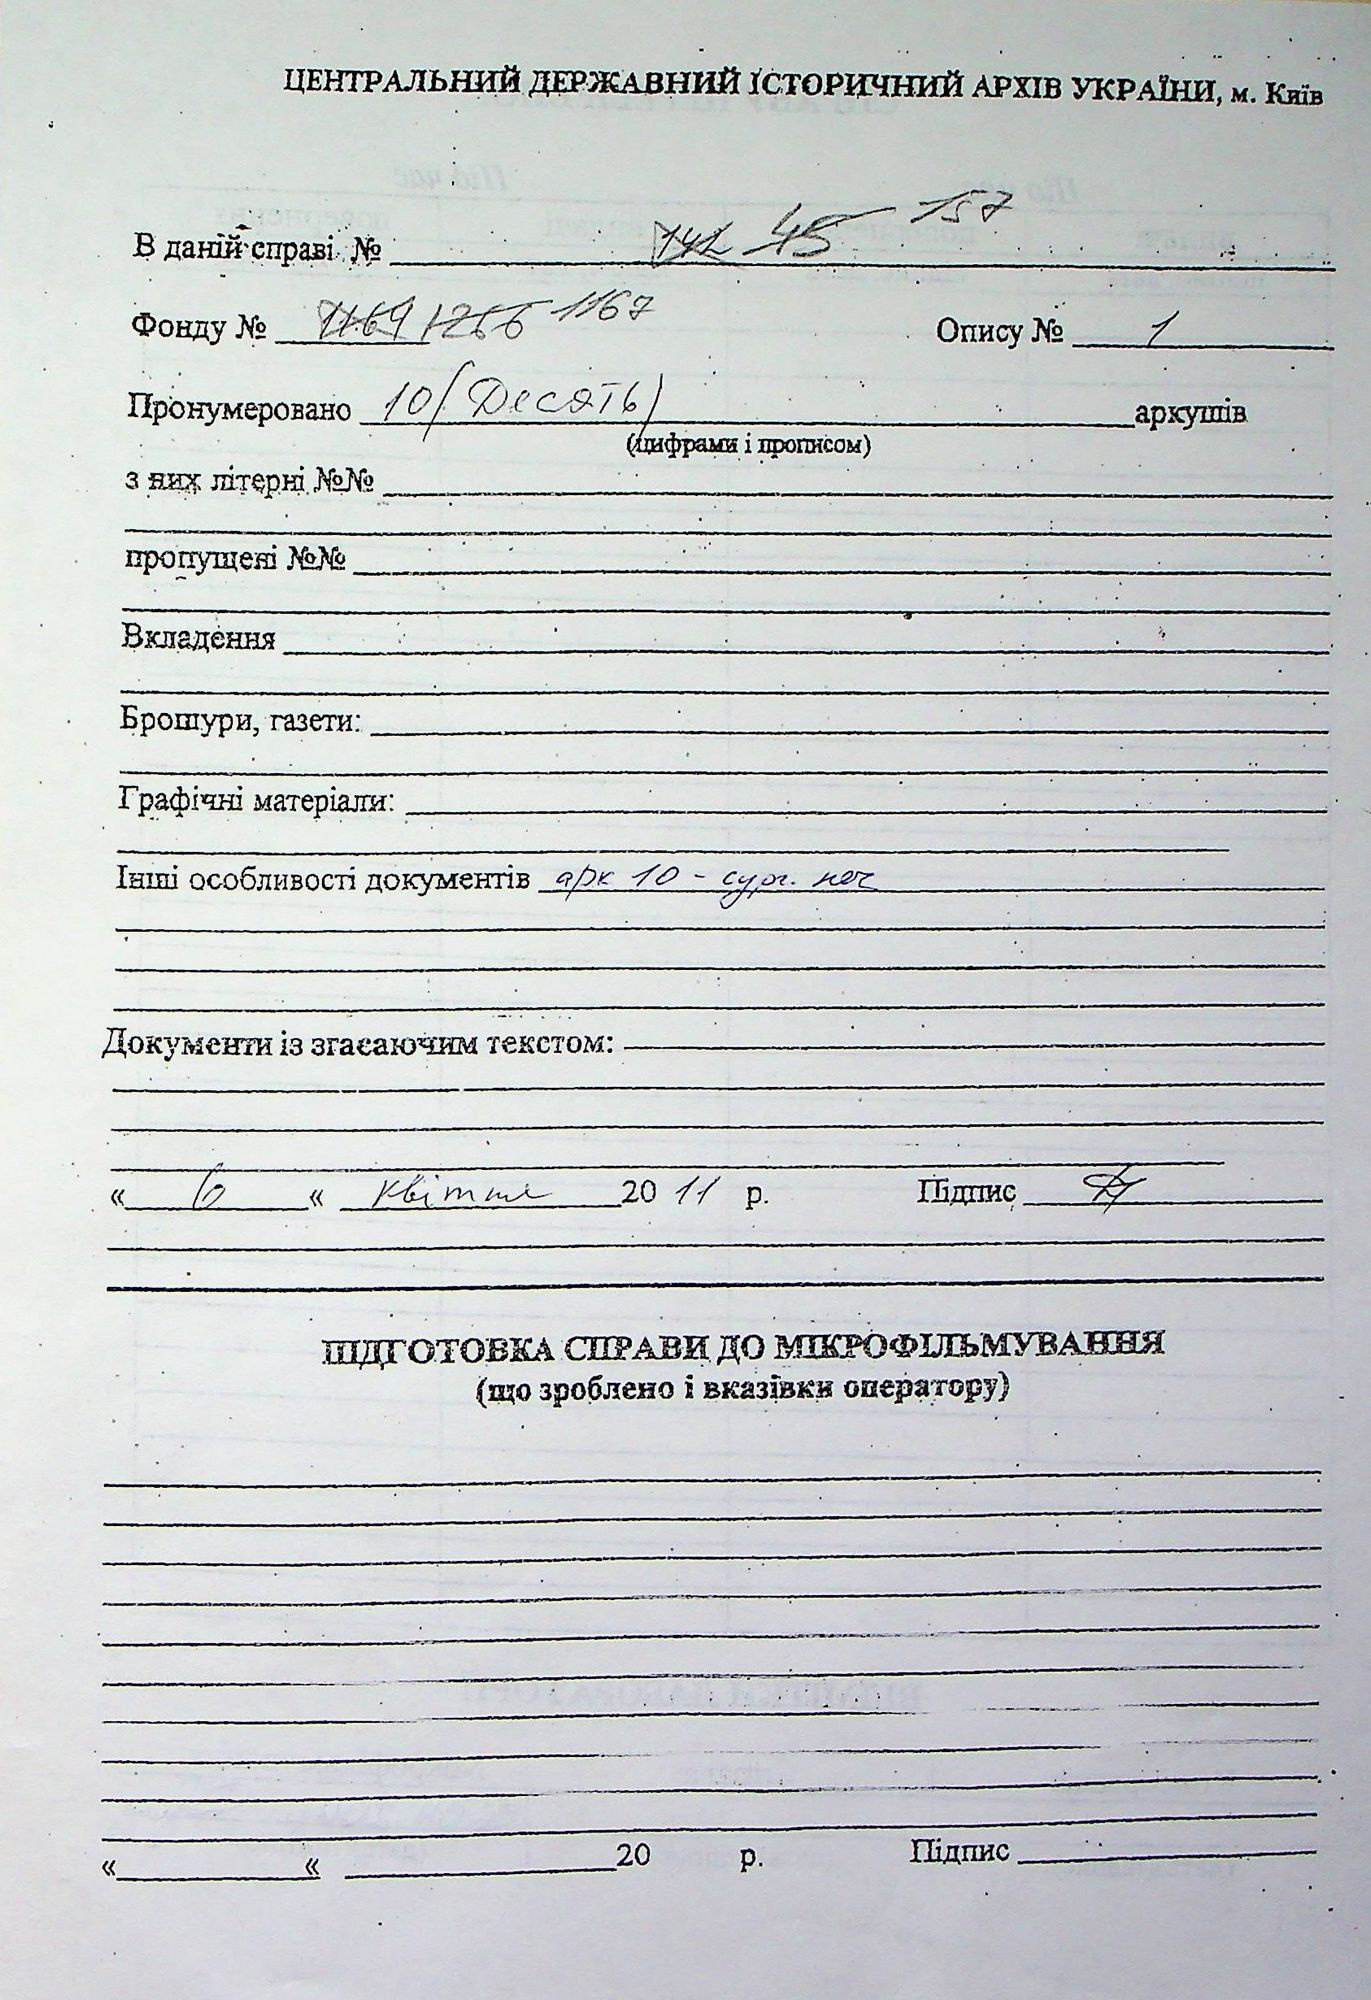 ЦЕНТРАЛЬНИЙ ДЕРЖАВНИЙ ІСТОРИЧНИЙ АРХІВ УКРАЇНИ, м. Київ
В даній справі № 142 45 157
Фонду № 1169 1256 1167 Опису № 1
Пронумеровано 10 (Десять) аркушів
(цифрами і прописом)
з них літерні №№
пропущені №№
Вкладення
Брошури, газети:
Графічні матеріали:
Інші особливості документів арк 10 - сург. печ
Документи із згасаючим текстом:
« 6 « квітня 2011 р. Підпис
ПІДГОТОВКА СПРАВИ ДО МІКРОФІЛЬМУВАННЯ
(що зроблено і вказівки оператору)
« « 20 р. Підпис